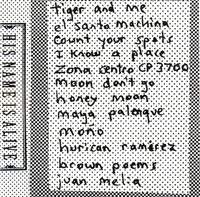 HIS NAME IS ALIVE
tiger and me
el santo machina
count your spots
I know a place
Zona centro CP 3700
moon don't go
honey moon
maya palenque
mono
hurican ramirez
brown poems
juan melia